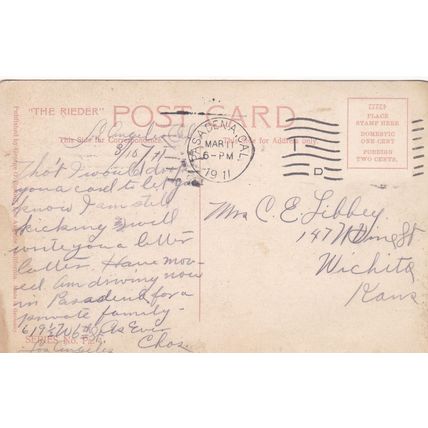 "THE RIEDER" POST CARD
This Side for Correspondence
The Side for Address only.
PLACE
STAMP HERE
DOMESTIC
ONE CENT
FOREIGN
TWO CENTS.
PASADENA, CAL.
MAR 11
6-PM
1911
D
Los Angeles Cal
3/10/11
Tho't I would drop
you a card to let you
know I am still
kicking & will
write you a letter
latter. Have mov-
ed am driving now
in Pasadena for a
private family-
619½ W 6th St As Ever
Los Angeles Chas.
SERIES No.
Mrs C. E. Libbey
147 N St
Wichita
Kans